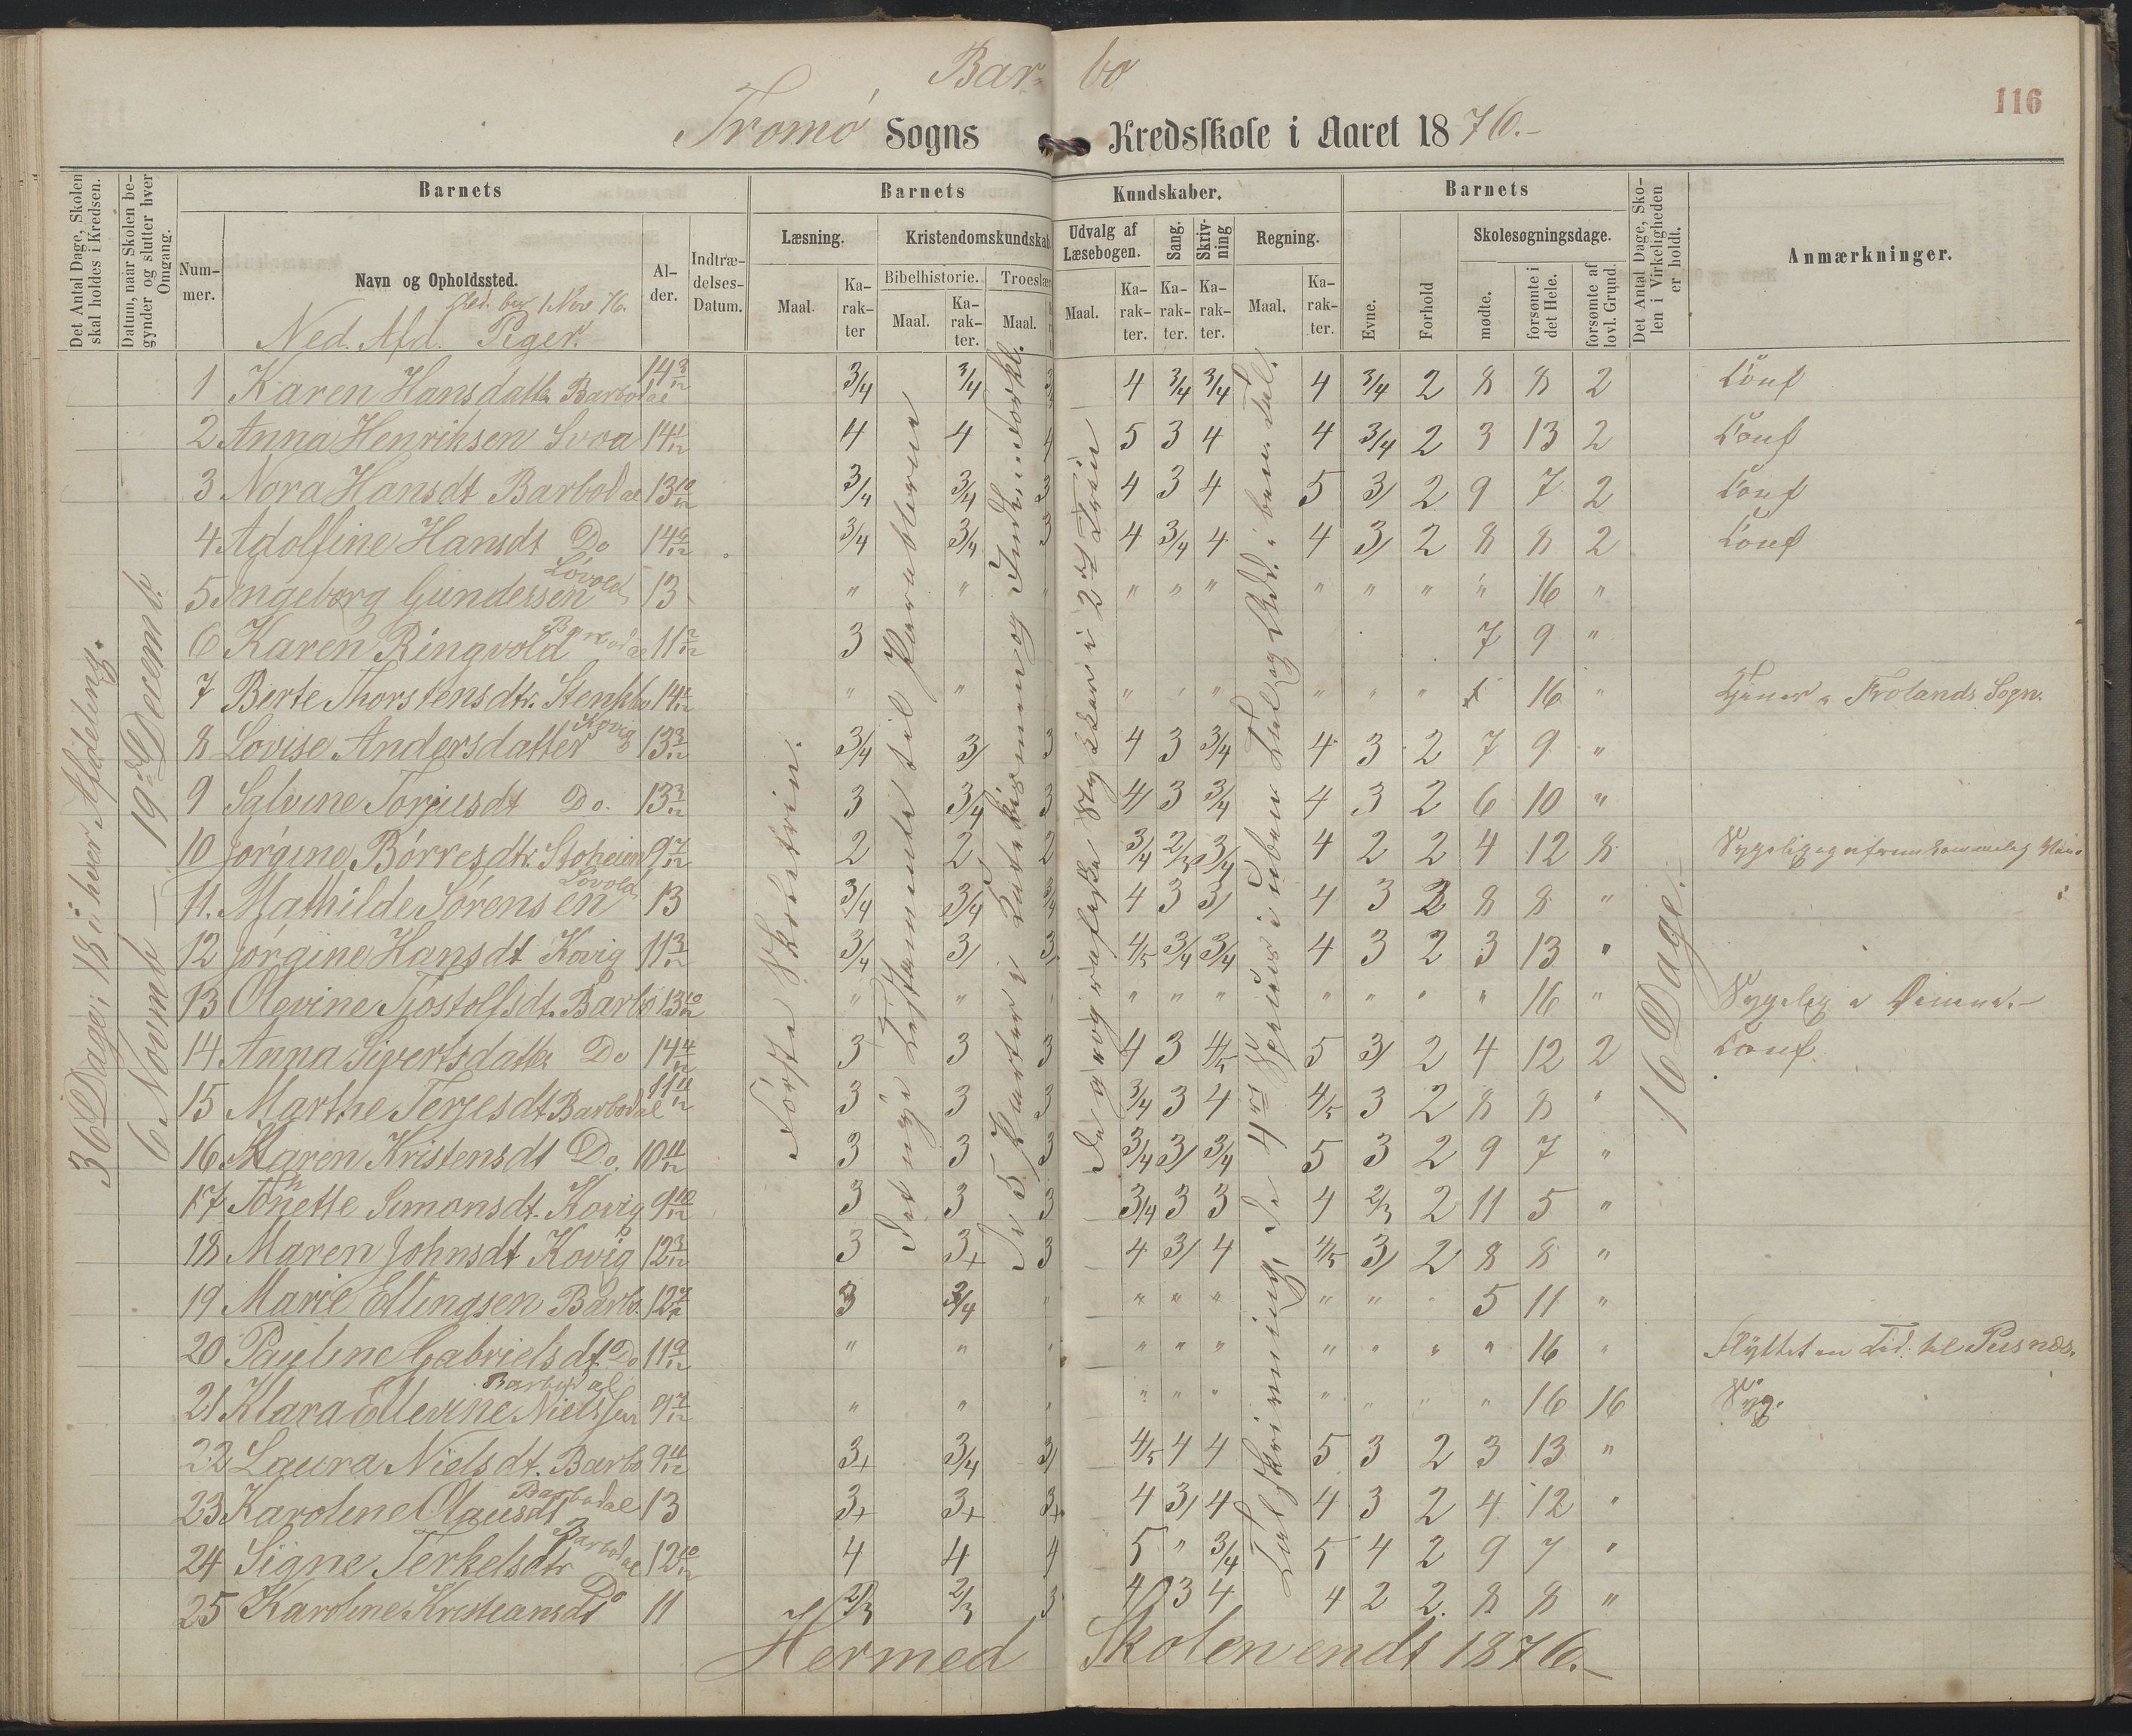 Bar- bo
116
Tromö Sogns Kredsskole i Aaret 1876.-
Det Antal Dage, Skolen skal holdes i Kredsen.
Datum, naar Skolen begynder og slutter hver Omgang.
Barnets
Nummer.
Navn og Opholdssted.
Alder.
Indtrædelses-Datum.
Barnets Kundskaber.
Læsning.
Maal.
Karakter
Kristendomskundskab
Bibelhistorie.
Maal.
Karakter.
Troeslær
Maal.
Udvalg af Læsebogen.
Maal.
Karakter.
Sang.
Karakter.
Skrivning
Karakter.
Regning.
Maal.
Karakter.
Barnets
Evne.
Forhold
Skolesøgningsdage.
mødte.
forsømte i det Hele.
forsømte af lovl. Grund.
Det Antal Dage, Skolen i Virkeligheden er holdt.
Anmærkninger.
1 Nov 76.
Ned. Afd. Piger.
36 Dage: 18 i hver Afdeling.
6 Novmb — 19de Decemb.
Første Skoletrin.
Det nye Testamente til Parablerne
De 5 Parter i Katekismen og Forkl.
De geografiske Stykker i 2det Trin
Talskrivning, De 4 Specier i ubenævnte Tal og Add. i benn. Tal.
16 Dage.-
1 Karen Hansdatter Barbodal 14 3/12 3/4 3/4 4 3/4 3/4 4 3/4 2 8 8 2 Conf
2 Anna Henriksen Svoa 4 4 4 5 3 4 4 3/4 2 3 13 2 Conf
3 Nora Hansdt Barbodal 13 10/12 3/4 3/4 3 4 3 4 5 3/ 2 9 7 2 Conf
4 Adolfine Hansdt Do 3/4 3/4 3 4 3/4 4 4 3/ 2 8 8 2 Conf
5 Ingeborg Gundersen Lövold 13 " " " " " " " " " " 16 "
6 Karen Ringvold Barbodal 3 7 9 "
7 Berte Thorstensdtr. " " " " " " " 16 " Tjener i Frolands Sogn.
8 Lovise Andersdatter Kovig 13 3/12 3/4 3/ 3 4 3 3/4 4 3 2 7 9 "
9 Salvine Torjusdt Do. 13 3/12 3 3/4 3 4/ 3 3/4 4 3 2 6 10 "
10 Jörgine Börresdtr. 9 7/12 2 2 2 3/4 2/3 3/4 4 2 2 4 12 8
11. Mathilde Sörensen Lövold 13 3/4 3/4 3/4 4 3 3/ 4 3 2 8 8 "
12 Jörgine Hansdt Kovig 11 3/12 3/4 3/ 3/ 4/5 3/4 3/4 4 3 2 3 13 "
13 Olevine Tjostolfsdt. Barbo 13 10/12 " " " " " " " " " 16 " Sygelig
14 Anna Sivertsdatter Do 14 4/12 3 3 3 4 3 4/5 5 3/ 2 4 12 2 Conf.
15 Marthe Terjesdt Barbodal 11 11/12 3 3 3 3/4 3 4 4/5 3 2 8 8 "
16 Maren Kristensdt Do. 10 11/12 3 3 3 3/4 3/ 3/4 5 3 2 9 7 "
17 Tonnette Simonsdt. Kovig 9 10/12 3 3 3 3/4 3 3 4 2/3 2 11 5 "
18 Maren Johnsdt Kovig 12 3/12 3 3+ 3 4 3/ 4 4/5 3/ 2 8 8 "
19 Marie Ellingsen Barbo. 3 3/4 " " " " " " 5 11 "
20 Pauline Gabrielsdt. Do 11 9/12 " " " " " " " " " 16 " Flyttet en Tid til Pusnæs.
21 Klara Ellevine Nielssen Barbodal 9 7/12 " " " " " " " " " 16 16 Syg.
22 Laura Nielsdt. Barbo 9 11/12 3+ 3/4 3/ 4/5 4 4 5 3 2 3 13 "
23 Karoline Olausdt Barbodal 13 3+ 3+ 3+ 4 3/ 4 4 3 2 4 12 "
24 Signe Terkelsdtr Barbodal 12 10/12 4 4 4 5 " 3/4 5 4 2 9 7 "
25 Karoline Kristiansdt Do 11 2/3 2/3 3 4 3 4 4 2 2 8 8 "
Hermed Skolen endt 1876.-